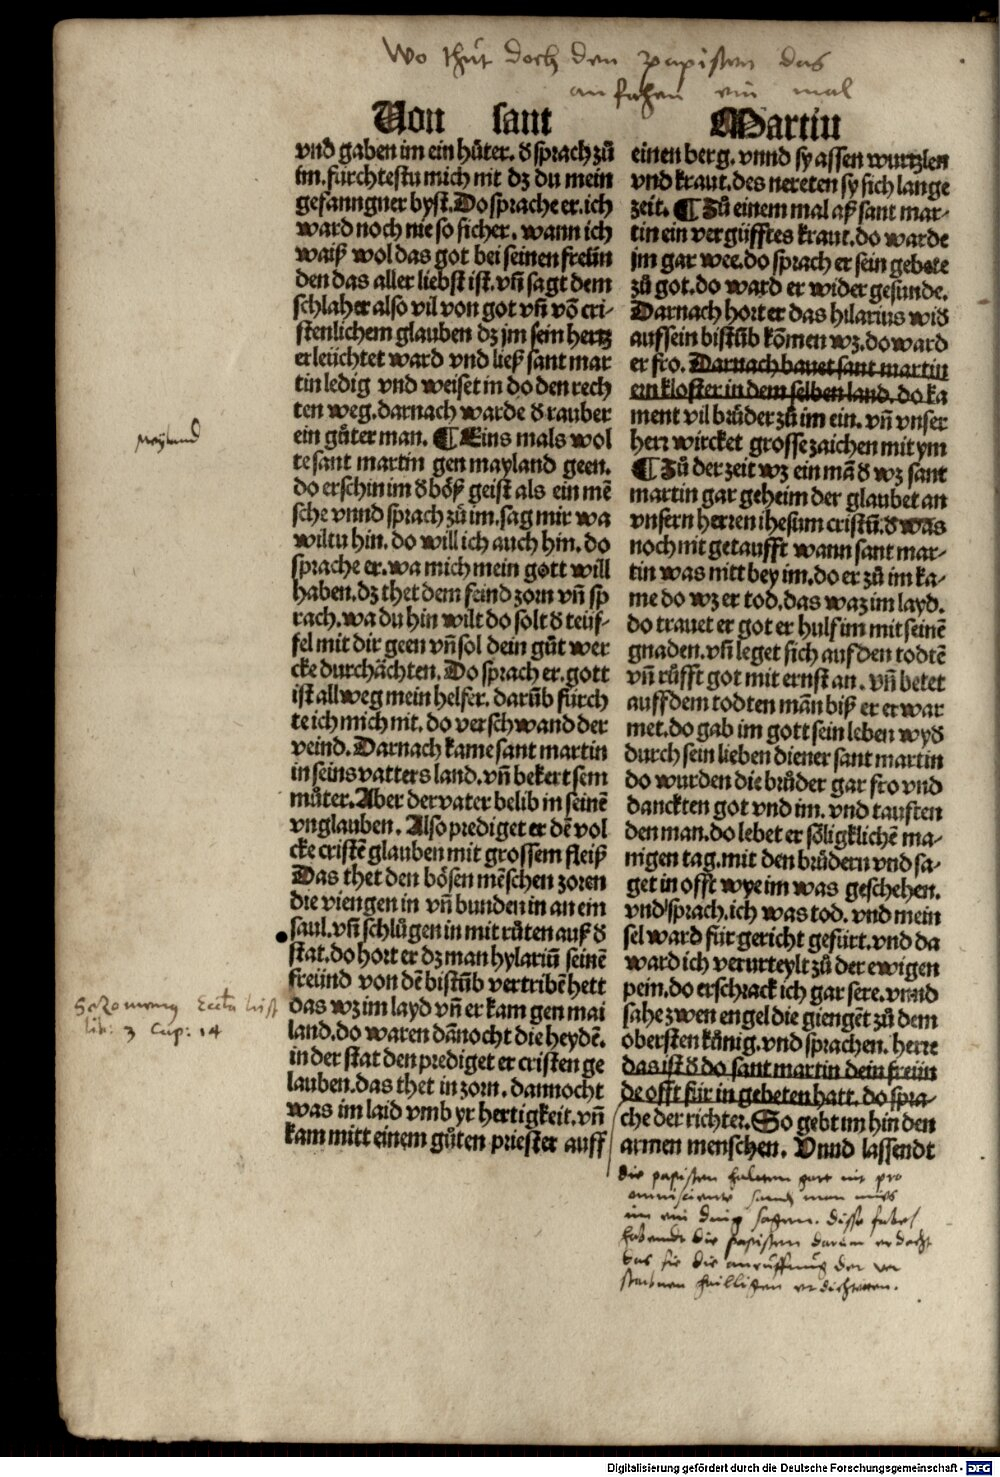 Wo thůt doch den papisten das
anfahen ein mal
Von sant Martin
vnd gaben im ein hůter. d̕ sprach zů
im. fürchtestu mich nit dz du mein
gefanngner byst. Do sprache er. ich
ward noch nie so sicher. wann ich
waiß wol das got bei seinen freün
den das aller liebst ist. vñ sagt dem
schlaher also vil von got vñ võ cri-
stenlichem glauben dz jm sein hertz
erleüchtet ward vnd ließ sant mar
tin ledig vnd weiset in do den rech
ten weg. darnach warde d̕ rauber
ein gůter man. ¶ Eins mals wol
te sant martin gen mayland geen.
do erschin im d̕ böß geist als ein mē
sche vnnd sprach zů im. sag mir wa
wiltu hin. do will ich auch hin. do
sprache er. wa mich mein gott will
haben. dz thet dem feind zorn vñ sp
rach. wa du hin wilt do solt d̕ teüf-
fel mit dir geen vñ sol dein gůt wer
cke durchächten. Do sprach er. gott
ist allweg mein helfer. darūb fürch
te ich mich nit. do verschwand der
veind. Darnach kame sant martin
in seins vatters land. vñ bekert sein
můter. Aber der vater belib in seinē
vnglauben. Also prediget er dē vol
cke cristē glauben mit grossem fleiß
Das thet den bösen mēschen zoren
die viengen in vñ bunden in an ein
saul. vñ schlůgen in mit růten auß d̕
stat. do hort er dz man hylariū seinē
freünd von dē bistūb vertribē hett
das wz im layd vñ er kam gen mai
land. do waren dānocht die heydē.
in der stat den prediget er cristen ge
lauben. das thet in zorn. dannocht
was im laid vmb yr hertigkeit. vñ
kam mitt einem gůten priester auff
einen berg. vnnd sy assen wurtzlen
vnd kraut. des nereten sy sich lange
zeit. ¶ Zů einem mal aß sant mar-
tin ein vergüfftes kraut. do warde
jm gar wee. do sprach er sein gebete
zů got. do ward er wider gesunde.
Darnach hort er das hilarius wid̕
auf sein bistūb kōmen wz. do ward
er fro. Darnach bauet sant martin
ein kloster in dem selben land. do ka
ment vil brůder zů im ein. vñ vnser
herr wircket grosse zaichen mit ym
¶ Zů der zeit wz ein mā d̕ wz sant
martin gar geheim der glaubet an
vnsern herren ihesum cristū. d̕ was
noch nit getaufft wann sant mar-
tin was nitt bey im. do er zů im ka-
me do wz er tod. das waz im layd.
do trauet er got er hulf im mit seinē
gnaden. vñ leget sich auf den todtē
vñ růfft got mit ernst an. vñ betet
auff dem todten mān biß er erwar
met. do gab im gott sein leben wyd̕
durch sein lieben diener sant martin
do wurden die brůder gar fro vnd
danckten got vnd im. vnd tauften
den man. do lebet er söligklichē ma-
nigen tag. mit den brůdern vnd sa-
get in offt wye im was geschehen.
vnd sprach. ich was tod. vnd mein
sel ward für gericht gefürt. vnd da
ward ich verurteylt zů der ewigen
pein. do erschrack ich gar sere. vnnd
sahe zwen engel die giengēt zů dem
obersten künig. vnd sprachen. herre
das ist d̕ do sant martin dein freün
de offt für in gebeten hatt. do spra-
che der richter. So gebt im hin den
armen menschen. Vnnd lassendt
Meyland
Sozomenus Eccl. hist
lib: 3 Cap: 14
die papisten
im ein ding sagen. disse fabel
habendt die papisten darum erdacht
das sie die anrůffung der ver
storbnen heilligen erdichteten.
Digitalisierung gefördert durch die Deutsche Forschungsgemeinschaft - DFG